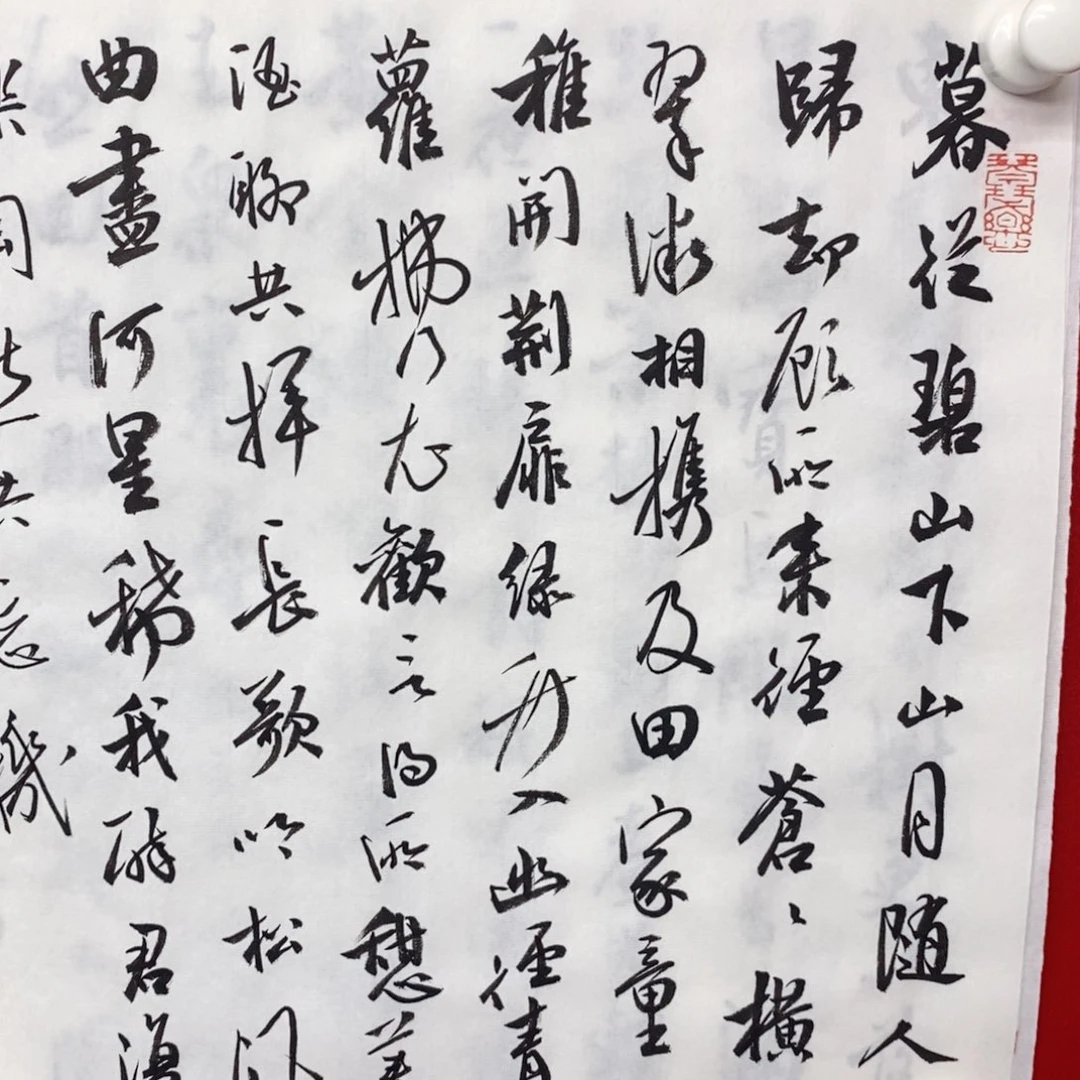 暮從碧山下山月随人
歸却顧所來徑蒼〻橫
翠微相攜及田家童
稚開荊扉緑竹入幽徑青
蘿拂行衣歡言得所憩美
酒聊共揮長歌吟松風
曲盡河星稀我醉君復
樂陶然共忘機